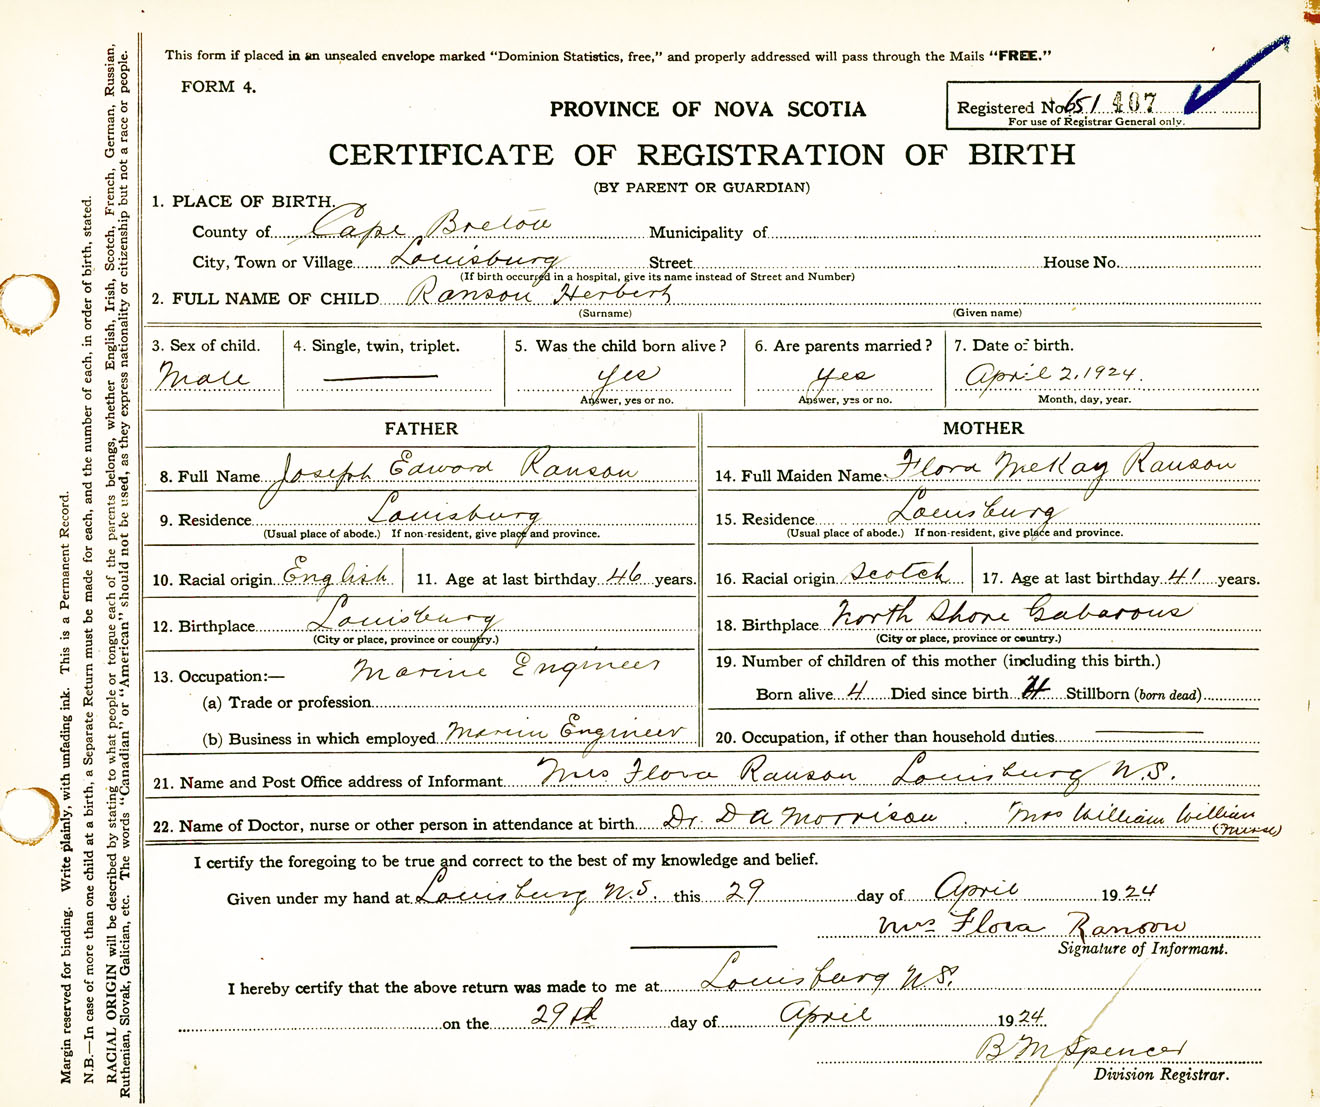 This form if placed in an unsealed envelope marked "Dominion Statistics, free," and properly addressed will pass through the Mails "FREE."
FORM 4.
PROVINCE OF NOVA SCOTIA
Registered No. 651 407
For use of Registrar General only.
CERTIFICATE OF REGISTRATION OF BIRTH
(BY PARENT OR GUARDIAN)
1. PLACE OF BIRTH.
County of Cape Breton Municipality of
City, Town or Village Louisburg Street House No.
(If birth occurred in a hospital, give its name instead of Street and Number)
2. FULL NAME OF CHILD Ranson Herbert
(Surname) (Given name)
3. Sex of child. 4. Single, twin, triplet. 5. Was the child born alive? 6. Are parents married? 7. Date of birth.
Male yes yes April 2, 1924.
Answer, yes or no. Answer, yes or no. Month, day, year.
FATHER MOTHER
8. Full Name Joseph Edward Ranson 14. Full Maiden Name Flora McKay Ranson
9. Residence Louisburg 15. Residence Louisburg
(Usual place of abode.) If non-resident, give place and province. (Usual place of abode.) If non-resident, give place and province.
10. Racial origin English 11. Age at last birthday 46 years. 16. Racial origin Scotch 17. Age at last birthday 41 years.
12. Birthplace Louisburg 18. Birthplace North Shore Gabarous
(City or place, province or country.) (City or place, province or country.)
13. Occupation:— Marine Engineer 19. Number of children of this mother (including this birth.)
(a) Trade or profession Born alive 4 Died since birth 4 Stillborn (born dead)
(b) Business in which employed Marine Engineer 20. Occupation, if other than household duties
21. Name and Post Office address of Informant Mrs Flora Ranson Louisburg N.S.
22. Name of Doctor, nurse or other person in attendance at birth Dr. D A Morrison Mrs William William
(Nurse)
I certify the foregoing to be true and correct to the best of my knowledge and belief.
Given under my hand at Louisburg N.S. this 29 day of April 1924
Mrs Flora Ranson
Signature of Informant.
I hereby certify that the above return was made to me at Louisburg N.S.
on the 29th day of April 1924
B M Spencer
Division Registrar.
Margin reserved for binding. Write plainly, with unfading ink. This is a Permanent Record.
N.B.—In case of more than one child at a birth, a Separate Return must be made for each, and the number of each, in order of birth, stated.
RACIAL ORIGIN will be described by stating to what people or tongue each of the parents belongs, whether English, Irish, Scotch, French, German, Russian,
Ruthenian, Slovak, Galician, etc. The words "Canadian" or "American" should not be used, as they express nationality or citizenship but not a race or people.